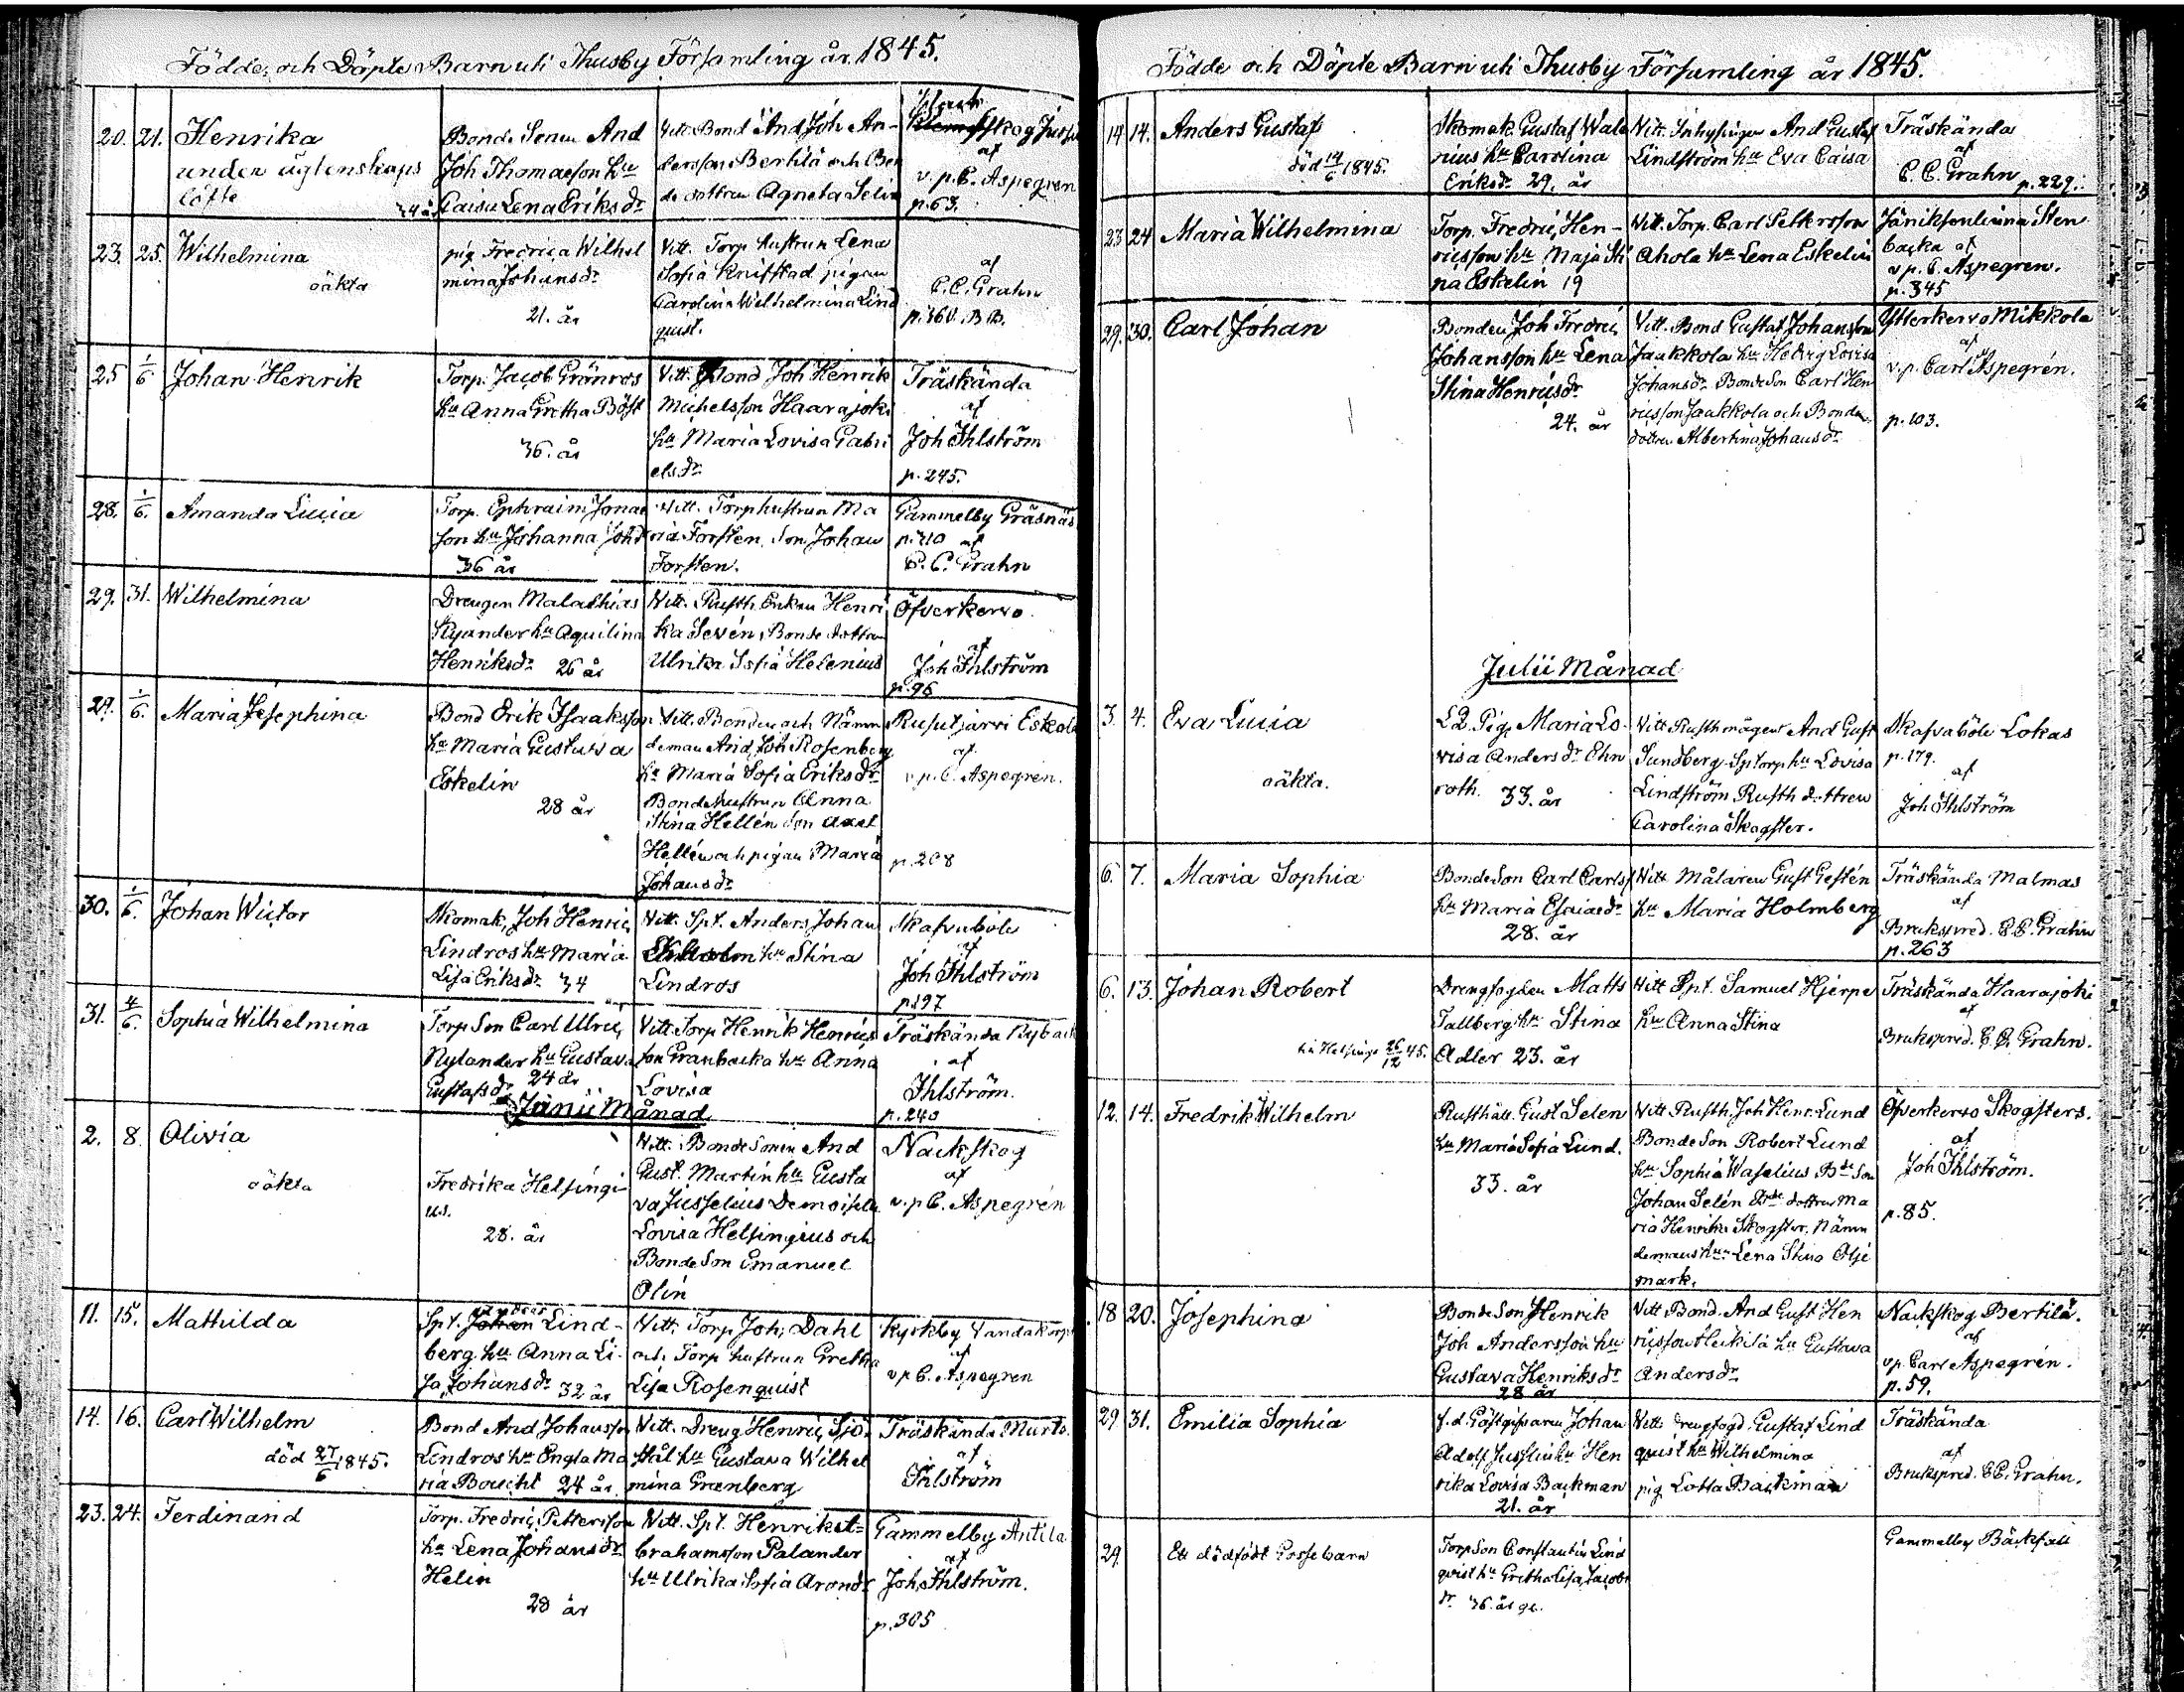 Födde och Döpte Barn uti Thusby Församling år 1845.
20. 21. Henrika
under ägtenskaps
löfte
Bonde Sonen And
Joh Thomasson hu
Caisa Lena Eriksdr
24 år
Vitt. Bond And Joh An-
dersson Bertilä och Bon
de dottren Agneta Selin
skog Jussi
af
v. p. C. Aspegren
p. 63.
23. 25. Wilhelmina
oäkta
pig Fredrica Wilhel
mina Johansdr
21. år
Vitt. Torp hustrun Lena
Sofia Knifstad pigan
Carolina Wilhelmina Lind
quist.
af
C. C. Grahn
25 1/6 Johan Henrik
Torp. Jacob Grönros
hu Anna Gretha Böst
36. år
Vitt. Bond Joh Henrik
Michelsson Haarajoki
hu Maria Lovisa Gabri
elsdr
Träskända
af
Joh Ihlström
p. 245.
28. 1/6. Amanda Lucia
Torp. Ephraim Jonas
son hu Johanna Johdr
36 år
Vitt. Torphustrun Ma
ria Forsten. Son Johan
Forsten.
Gammelby Gräsnäs
p. 310 af
C. C. Grahn
29. 31. Wilhelmina
Drengen Malathias
Kyander hu Aquilina
Henriksdr 26 år
Vitt. Rusth Enkan Henri
ka Sevén, Bonde dottren
Ulrika Sofia Helenius
Öfverkervo.
af
Joh Ihlström
p. 96
29. 1/6. Maria Josephina
Bond Erik Isaaksson
hu Maria Gustava
Eskelin
28 år
Vitt. Bonden och Nämn
deman And Joh Rosenberg
hu Maria Sofia Eriksdr
Bondehustrun Anna
Stina Hellén son Axel
Hellén och pigan Maria
Johansdr
Rusutjärvi Eskola
af
v. p. C. Aspegren.
p. 208
30. 1/6. Johan Wictor
Skomak, Joh Henric
Lindros hu Maria
Lisa Eriksdr 34
Vitt. Spt. Anders Johan
Ekholm hu Stina
Lindros
Skafvaböle
af
Joh Ihlström
p. 197
31. 4/6. Sophia Wilhelmina
Torp Son Carl Ulric
Nylander hu Gustava
Gustafsdr 24 år
Vitt. Torp Henrik Henrics
son Granbacka hu Anna
Lovisa
Träskända Ryback
af
Ihlström.
p. 240
Junii Månad
2. 8. Olivia
oäkta
Fredrika Helsingi
us.
28. år
Vitt. Bonde Sonen And
Gust. Martin hu Gusta
va Jusselius Demoiselle
Lovisa Helsingius och
Bonde Son Emanuel
Olin
Nackskog
af
v. p C. Aspegrén
11. 15. Mathilda
Spt. Johan Lind-
berg hu Anna Li-
sa Johansdr 32 år
Vitt. Torp Joh, Dahl
och Torp hustrun Gretha
Lisa Rosenquist
Kyrkby Vandatorp
af
v p C. Aspegren
14. 16. Carl Wilhelm
död 27/6 1845.
Bond And Johansson
Lindros hu Engla Ma
ria Boucht 24 år
Vitt. Dreng Henric Sjö
stål hu Gustava Wilhel
mina Grenberg
Träskända Murto.
af
Ihlström
23. 24. Ferdinand
Torp. Fredric Pettersson
hu Lena Johansdr
Helin
28 år
Vitt. Spt. Henrik A-
brahamsson Palander
hu Ulrika Sofia Aronsdr
Gammelby Antila
af
Joh, Ihlström.
p. 305
Födde och Döpte Barn uti Thusby Församling år 1845.
14 14. Anders Gustaf
död 14/6 1845.
Skomak Gustaf Wale
rius hu Carolina
Eriksdr 29. år
Vitt. Inhysingen And Gustaf
Lindström hu Eva Caisa
Träskända
af
C. C. Grahn p. 229.
23 24 Maria Wilhelmina
Torp. Fredric, Hen-
ricsson hu Maja Sti
na Eskelin 19
Vitt. Torp. Carl Petersson
Ahola hu Lena Eskelin
Sten
backa af
v p. C. Aspegren.
p. 345
29. 30. Carl Johan
Bonden Joh Fredric
Johansson hu Lena
Stina Henricsdr
24. år
Vitt. Bond Gustaf Johansson
Jaakkola hu Hedvig Lovisa
Johansdr Bonde Son Carl Hen
ricsson Jaakkola och Bonde
dottren Albertina Johansdr
Ytterkervo Mikkola
af
v. p. Carl Aspegrén.
p. 103.
Julii Månad
3. 4. Eva Lucia
oäkta.
LQ Pig, Maria Lo-
visa Andersdr Ehn
roth. 33. år
Vitt Rusth mågen And Gust
Sundberg. Sptorp hu Lovisa
Lindström Rusth dottren
Carolina Skogster.
Skafvaböle Lokas
p. 179.
af
Joh Ihlström
6. 7. Maria Sophia
Bonde Son Carl Carlss
hu Maria Esaiasdr
28. år
Vitt Målaren Gust Gestén
hu Maria Holmberg
Träskända Malmas
af
Brukspred. C C. Grahn
p. 263
6. 13. Johan Robert
26/12 45.
Drengfogden Matts
Tallberg hu Stina
Adler 23. år
Vitt Spt. Samuel Hjerpe
hu Anna Stina
Träskända Haarajoki
af
Brukspred. C C. Grahn.
12. 14. Fredrik Wilhelm
Rusthåll. Gust Selen
hu Maria Sofia Lund.
33. år
Vitt Rusth. Joh Henr. Lund
Bonde Son Robert Lund
hu Sophia Waselius Bde Son
Johan Selén Bde dottren Ma
ria Henrika Skogster, Nämn
demans hu Lena Stina Olje
mark.
Öfverkervo Skogsters.
af
Joh Ihlström.
p. 85.
18 20. Josephina
Bonde Son Henrik
Joh Andersson hu
Gustava Henriksdr
28 år
Vitt Bond. And Gust Hen
ricsson Heikilä hu Gustava
Andersdr
Nackskog Bertilä.
af
vp. Carl Aspegrén.
p. 59.
29. 31. Emilia Sophia
f. d. Gästgifvaren Johan
Adolf Jusselius hu Hen
rika Lovisa Backman
21. år
Vitt. Drengfogd. Gustaf Lind
quist hu Wilhelmina
pig. Lotta Backman
Träskända
af
Brukspred. C C. Grahn.
29. Ett dödfödt Gossebarn
Torp Son Constantin Lind
quist hu Gretha Lisa Jacobs
dr 36. år gl.
Gammelby Bäckfall